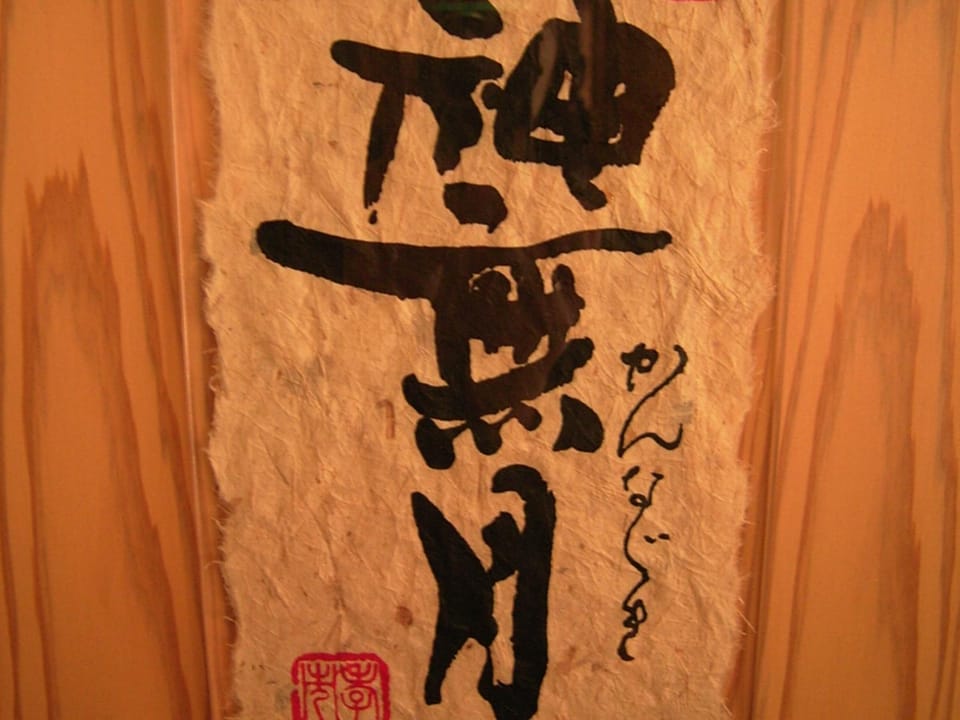 神無月
かんなづき